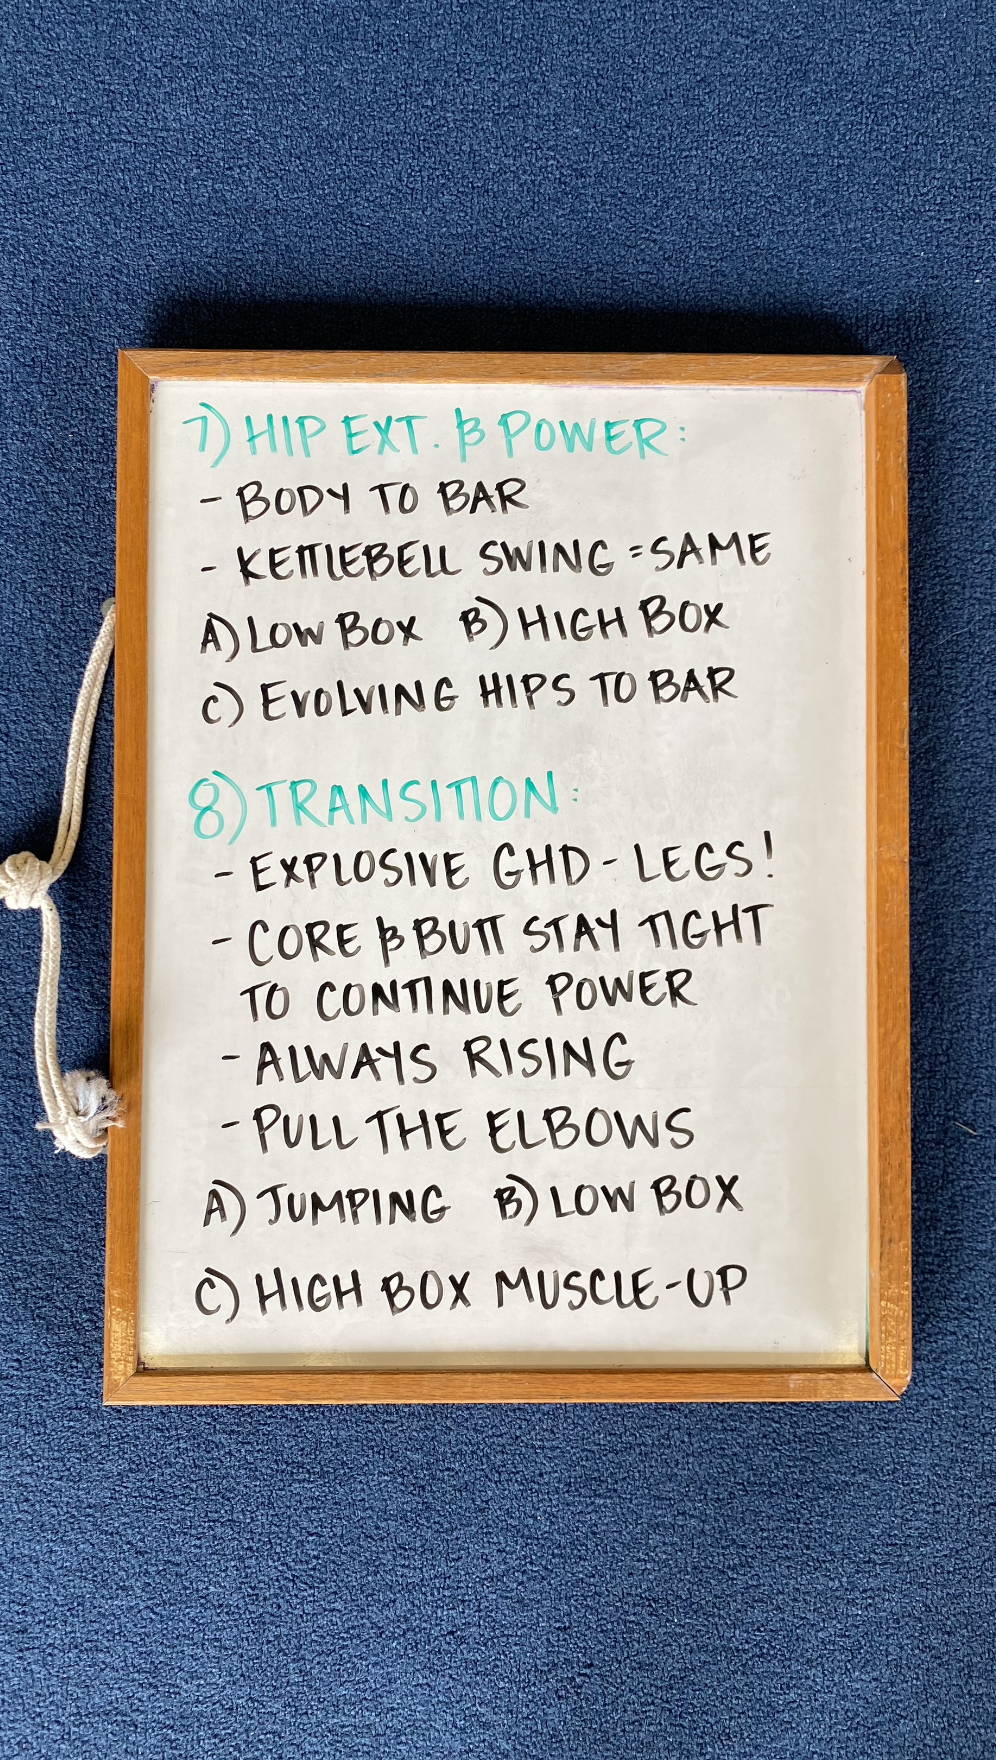 7) HIP EXT. & POWER:
- BODY TO BAR
- KETTLEBELL SWING = SAME
A) LOW BOX B) HIGH BOX
C) EVOLVING HIPS TO BAR
8) TRANSITION:
- EXPLOSIVE GHD - LEGS!
- CORE & BUTT STAY TIGHT
TO CONTINUE POWER
- ALWAYS RISING
- PULL THE ELBOWS
A) JUMPING B) LOW BOX
C) HIGH BOX MUSCLE-UP